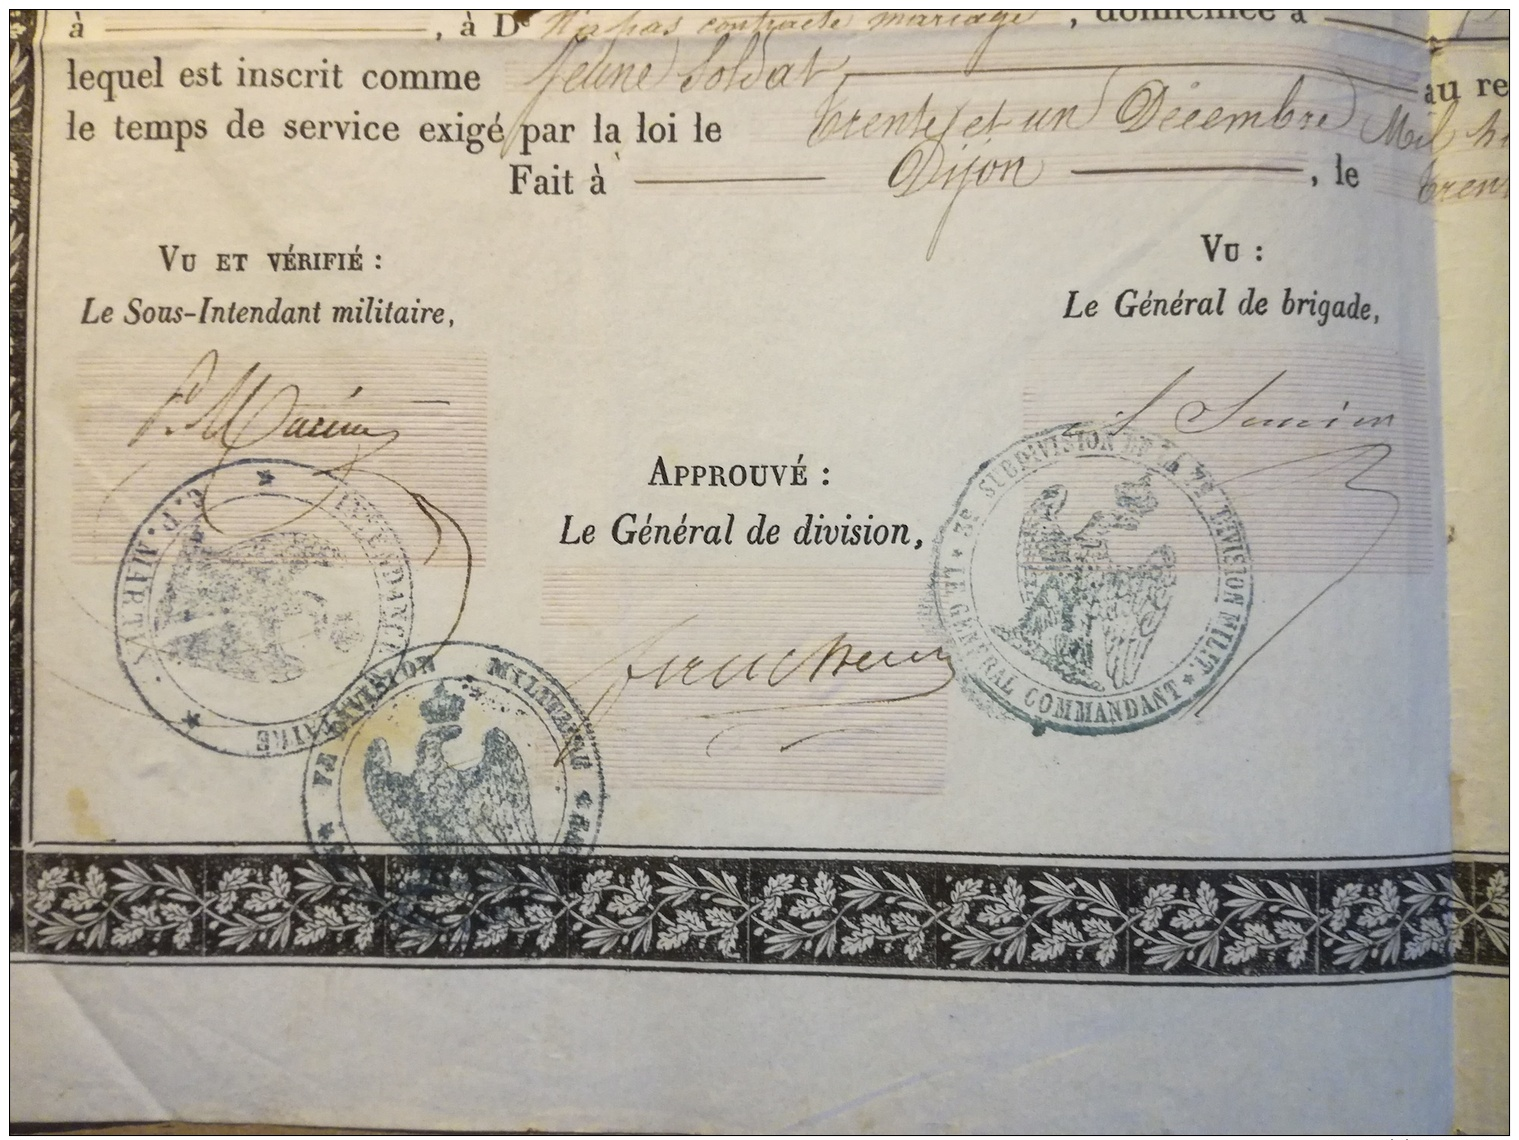 à , à De n'a pas contracté mariage , domicilié à
lequel est inscrit comme Jeune Soldat au re
le temps de service exigé par la loi le trente et un Décembre Mil
Fait à Dijon , le
VU ET VÉRIFIÉ :
Le Sous-Intendant militaire,
VU :
Le Général de brigade,
APPROUVÉ :
Le Général de division,
C. P. MARTY. INTENDANCE
3E SUBDIVISION DE LA 7E DIVISION MILIT. LE GÉNÉRAL COMMANDANT
7E DIVISION MILITAIRE